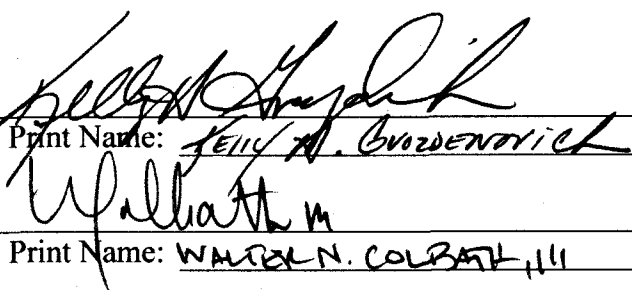 Kelly
Print Name: KELLY A. GVOZDENOVICH
Print Name: WALTER N. COLBATH, III